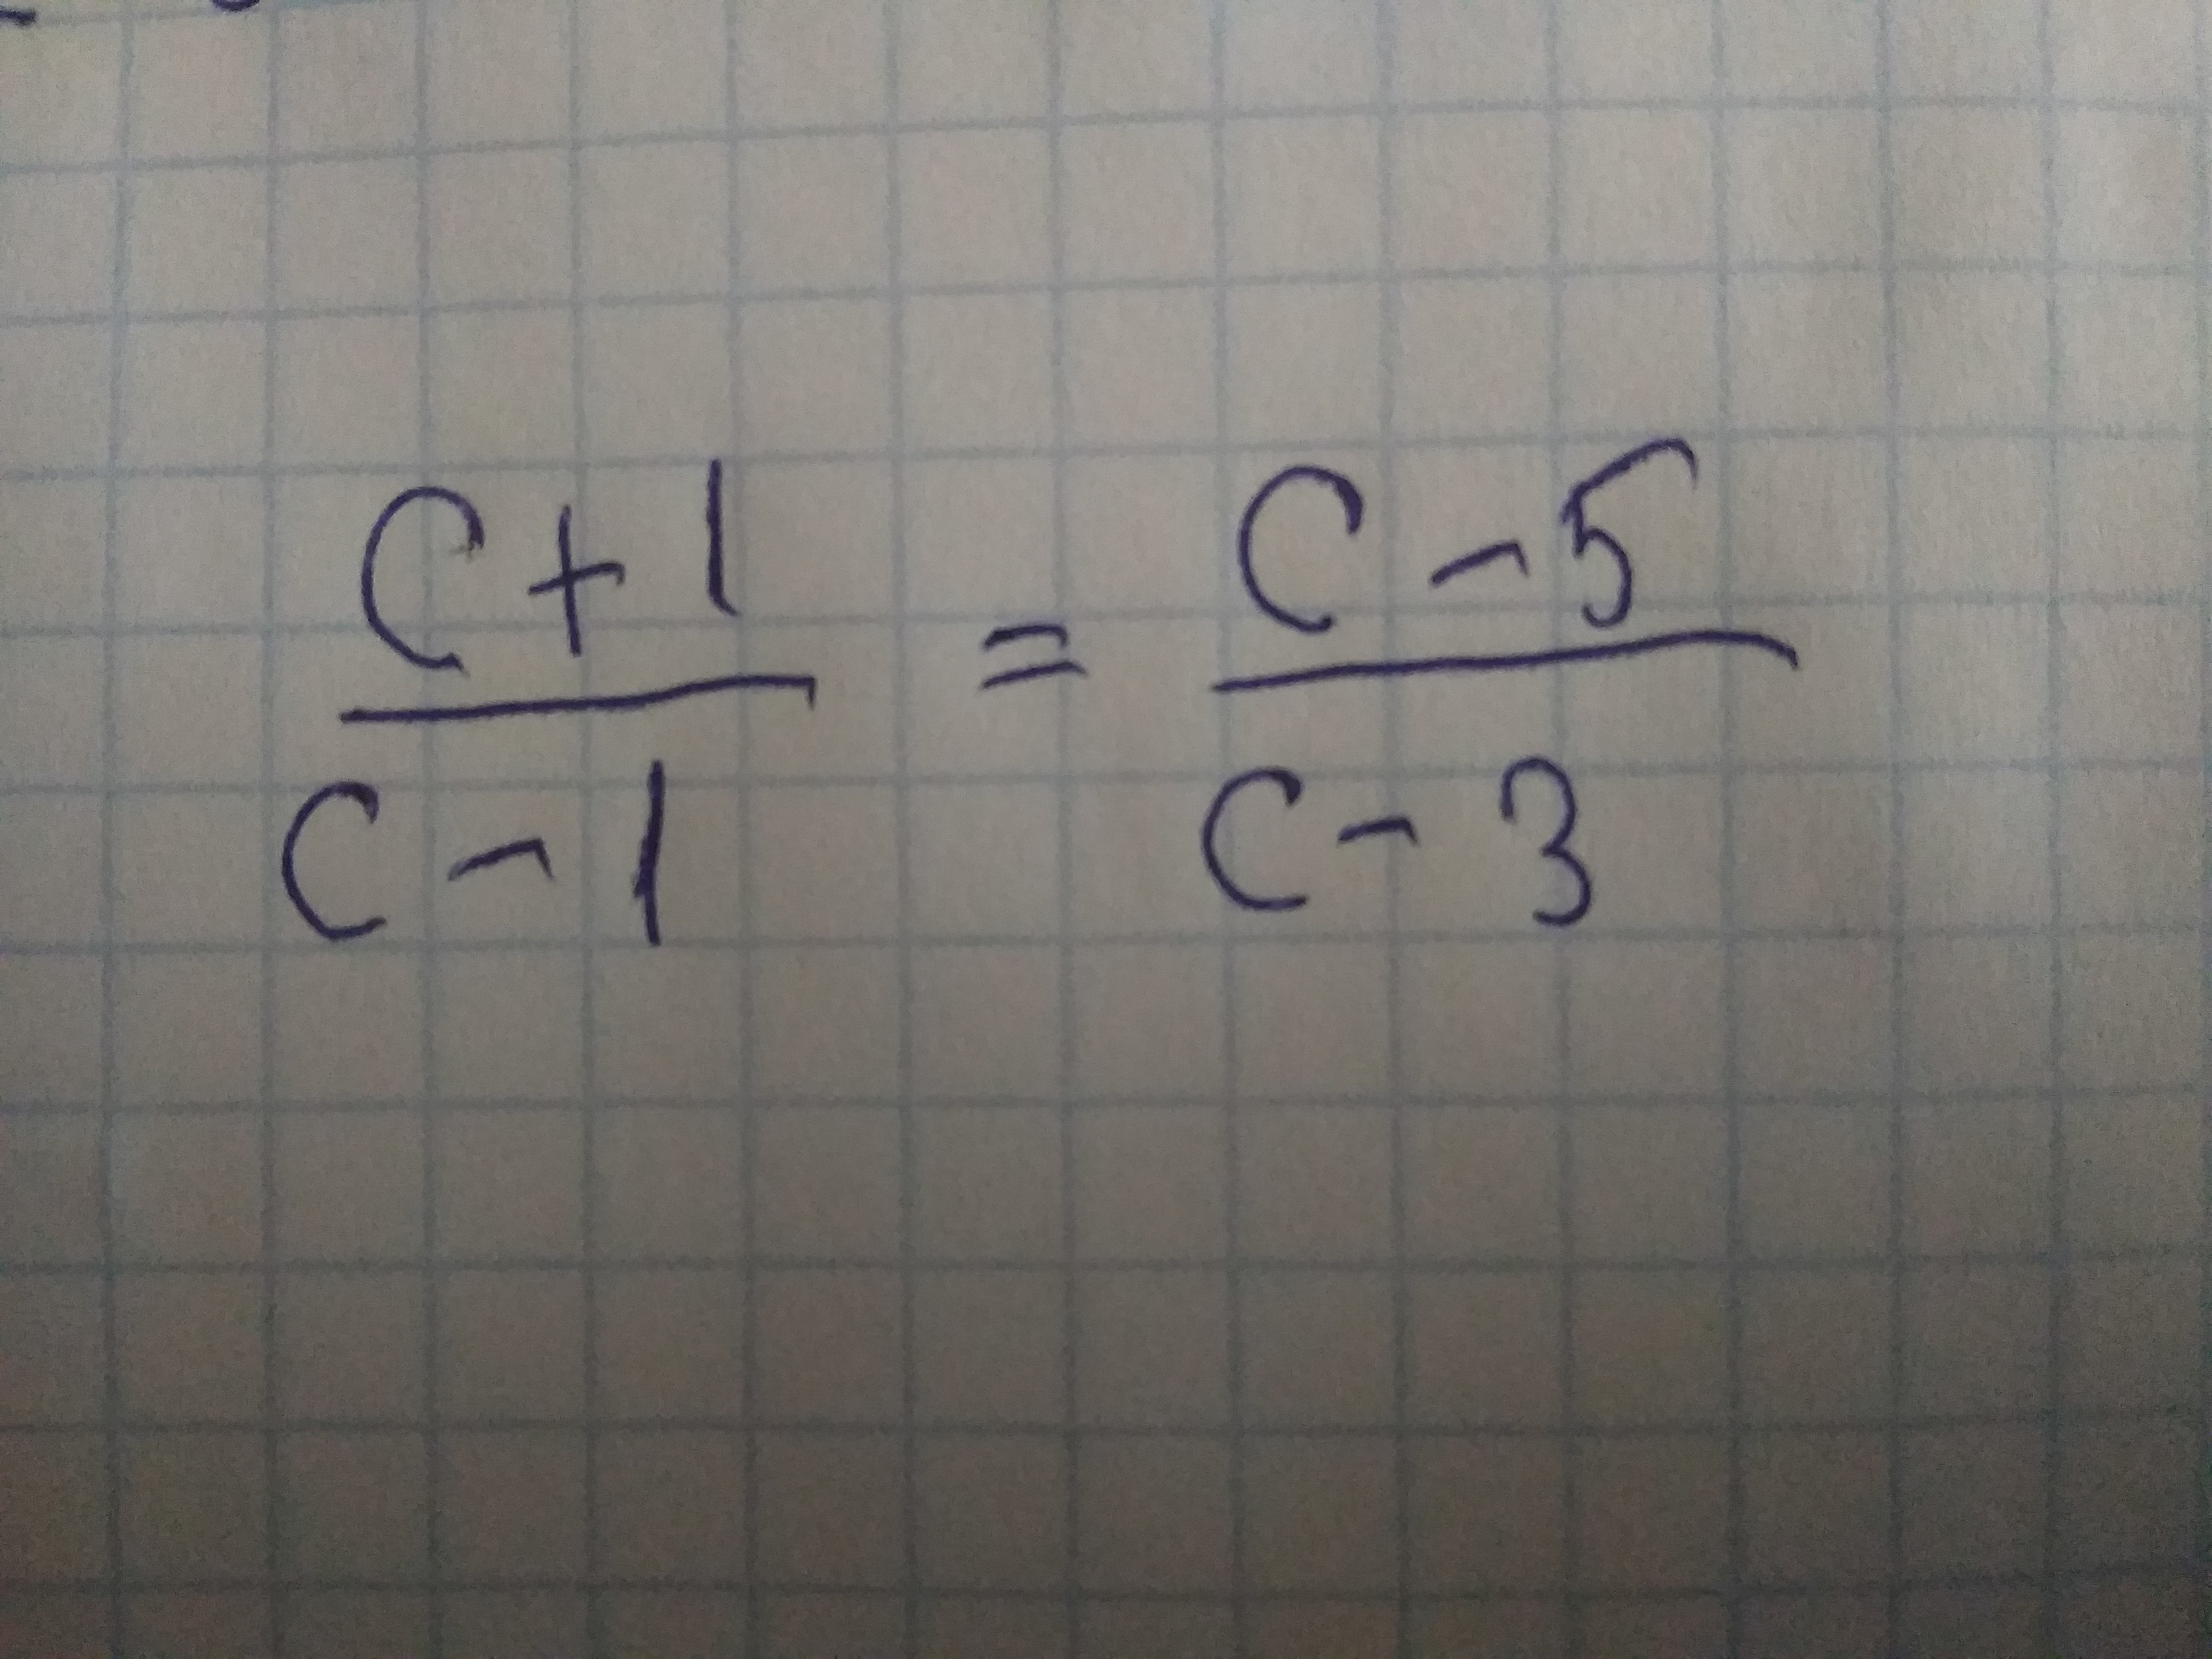 C+1 / C-1 = C-5 / C-3